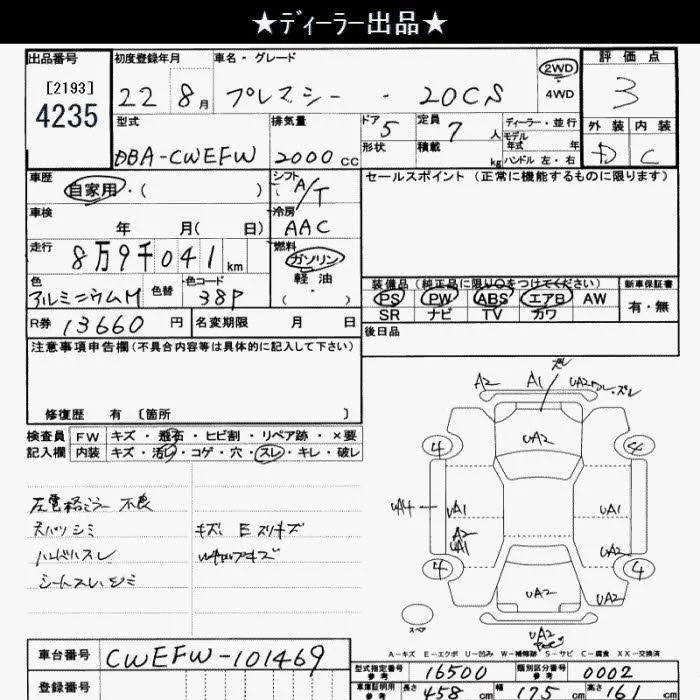 ★ディーラー出品★
出品番号 初度登録年月 車名・グレード 2WD 評価点
[2193] 22 8月 プレマシー ・ 20CS 4WD 3
4235 型式 排気量 ドア 5 定員 7人 ディーラー・並行 外装 内装
モデル
DBA-CWEFW 2000cc 形状 積載 kg 年式 年 D C
ハンドル 左・右
車歴 シフト セールスポイント (正常に機能するものに限ります)
自家用・( ) A/T
車検 冷房
年 月( 日) AAC
走行 燃料
8万9千041km ガソリン
軽油
色 色替 色コード ( )
アルミニウムM 38P
装備品(純正品に限り○をつけてください) 新車保証書
PS PW ABS エアB AW 有・無
SR ナビ TV カワ
R券 13660円 名変期限 月 日
後日品
注意事項申告欄(不具合内容等は具体的に記入して下さい)
修復歴 有 [箇所 ]
検査員 FW キズ・飛石・ヒビ割・リペア跡・×要
記入欄 内装 キズ・汚レ・コゲ・穴・スレ・キレ・破レ
左電格ミラー 不良
天バリシミ キズ E スリキズ
ハンドルスレ
シートスレ、シミ
A2 A1 UA2
4 UA2 4
UA4 UA1 UA1
A2
UA1 UA2
4 UA2 4
UA2
スペア UA2
A-キズ E-エクボ U-凹み W-補修跡 S-サビ C-腐食 XX-交換済
車台番号 CWEFW-101469
型式指定番号 参考 16500 類別区分番号 参考 0002
登録番号
車庫証明用 参考 長さ 458cm 幅 175cm 高さ 161cm